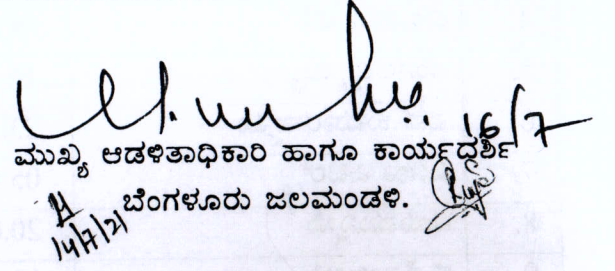 16/7
ಮುಖ್ಯ ಆಡಳಿತಾಧಿಕಾರಿ ಹಾಗೂ ಕಾರ್ಯದರ್ಶಿ
ಬೆಂಗಳೂರು ಜಲಮಂಡಳಿ.
14/7/21